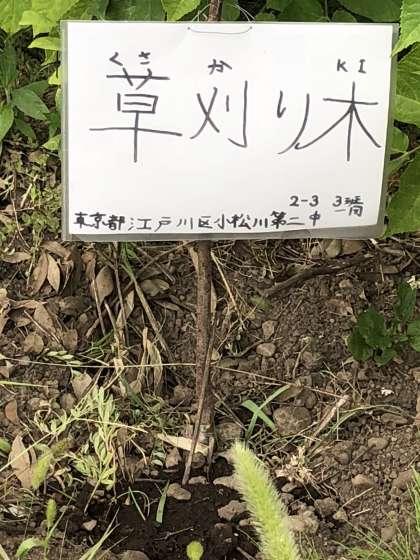 くさ か KI
草刈り木
2-3 3階
東京都江戸川区小松川第二中